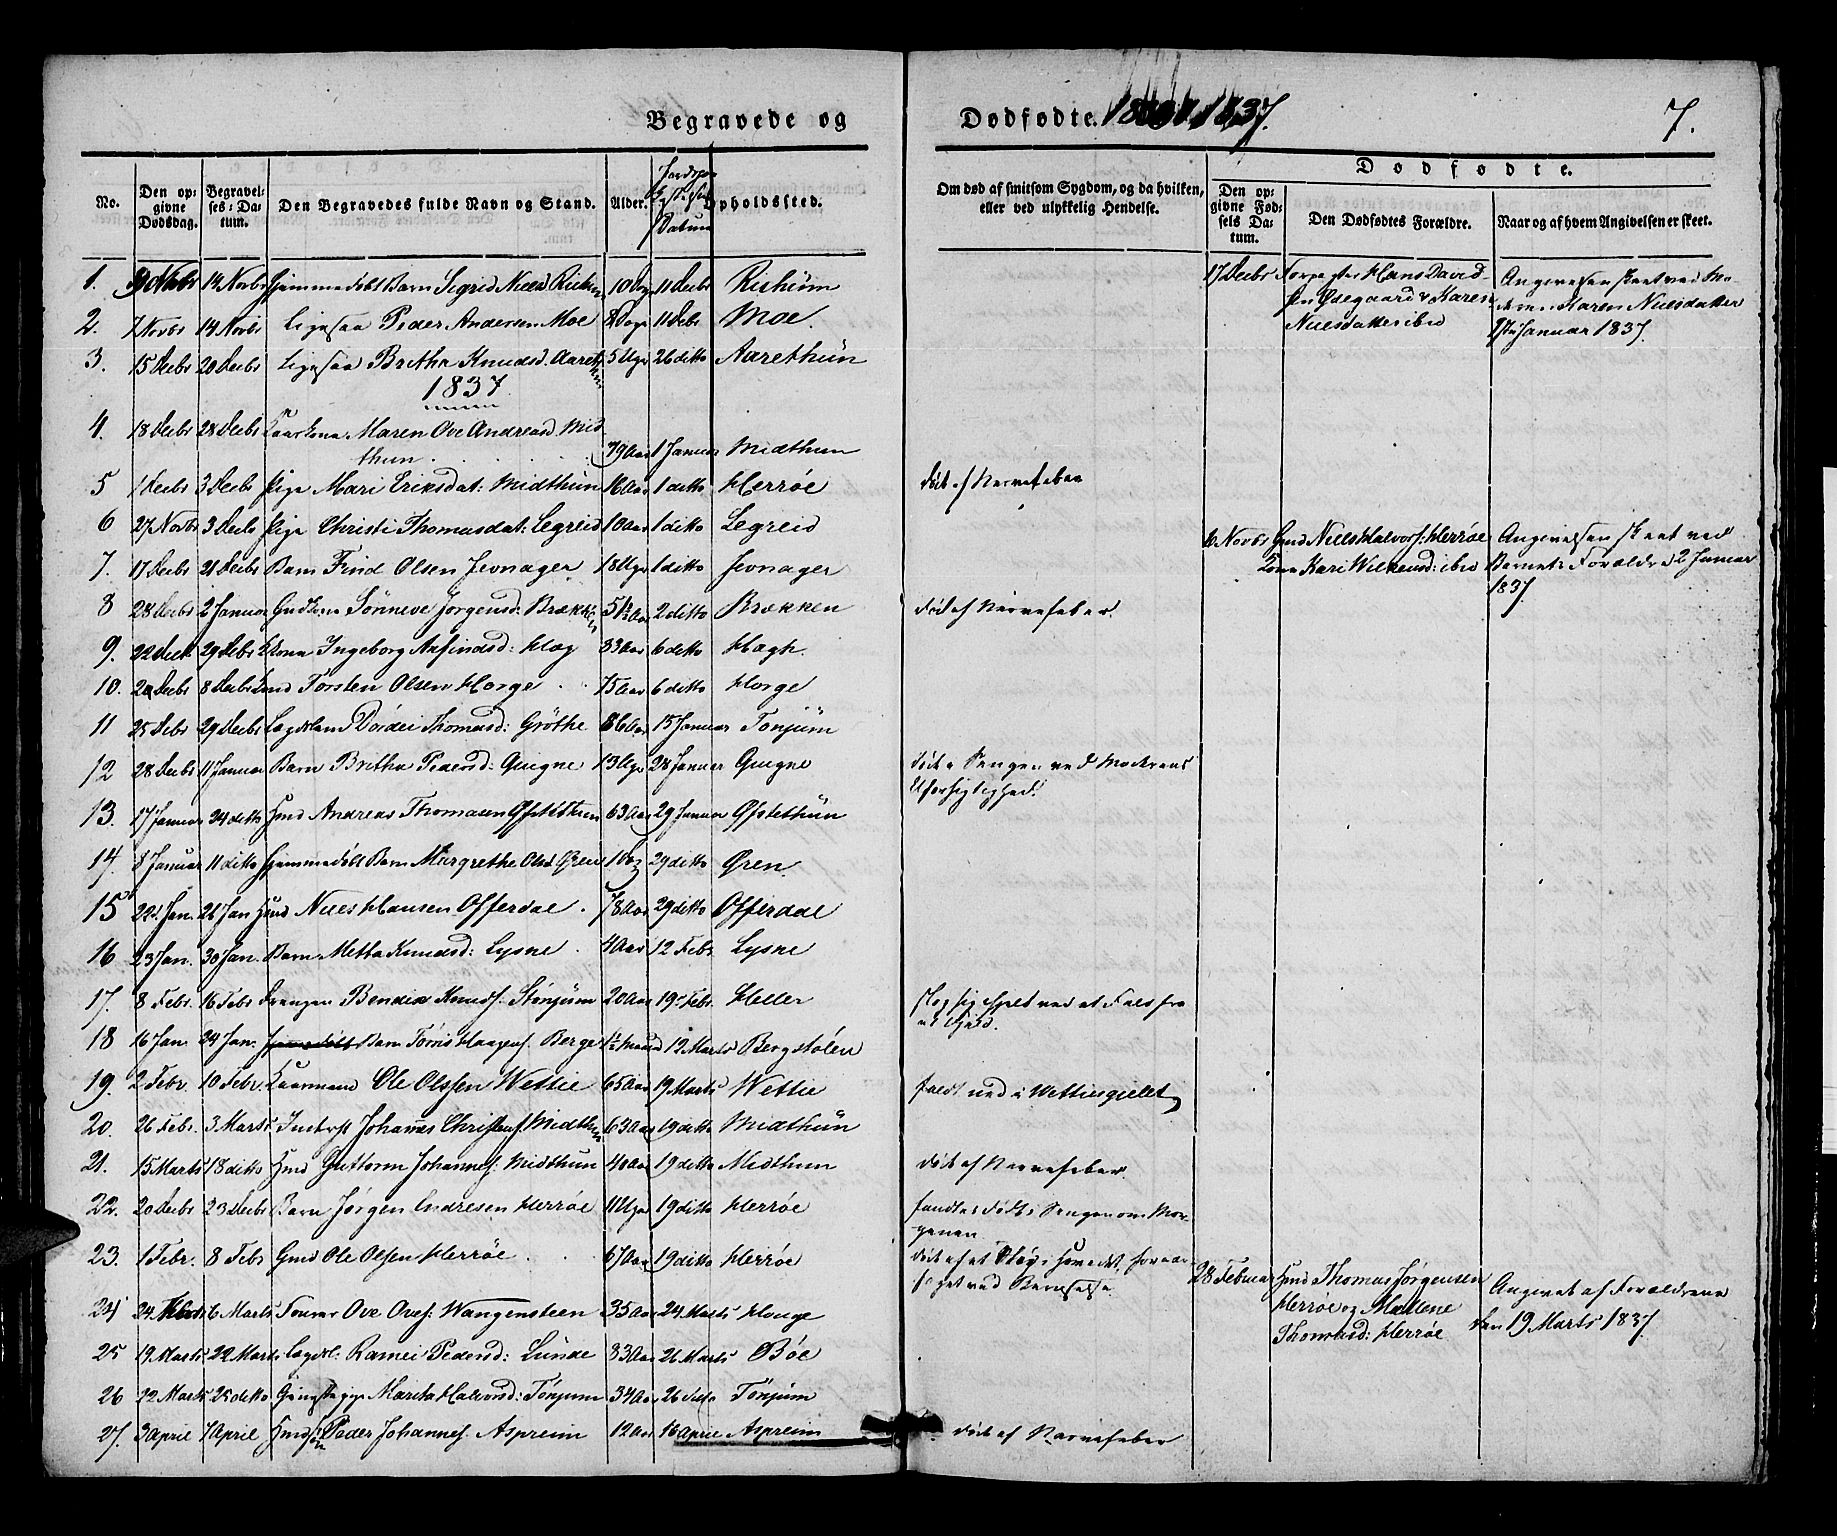 Begravede og
Dødfødte. 1837.
7.
No.
Den opgivne Dødsdag.
Begravelses-Datum.
Den Begravedes fulde Navn og Stand.
Alder.
Datum
Opholdssted.
Om død af smitsom Sygdom, og da hvilken, eller ved ulykkelig Hendelse.
Dødfødte.
Den opgivne Fødsels Datum.
Den Dødfødtes Forældre.
Naar og af hvem Angivelsen er skeet.
1. Novbr 14 Novbr Hjemmedøbt Barn Sigrid Niels 11 Decbr Rishiim
17 Decbr Hans Davidsen Ødegaard & Karen Nielsdatter ibid
Angivelsen skeet ved Karen Nielsdatter Januar 1837.
2. 7 Novbr 14 Novbr Ligesaa Peder Andersen Moe 2 Dage 11 Debr Moe.
3. 15 Decbr 20 Decbr Ligesaa Britha Knudsd. Aarethun 5 Uger 26 ditto Aarethün
1837
4. 18 Decbr 28 Decbr Maren Ove Andreasd. Midthun 79 Aar 1 Januar Midthun
5 1 Decbr 3 Decbr Pige Mari Eriksdat: Midthün 16 Aar 1 ditto Herrøe
død af Nervefeber
6 27 Novbr 3 Decbr Pige Christi Thomasdat: Legreid 10 Aar 1 ditto Legreid
Novbr Gmd Niels Halvors: Herrøe Kona Kari Wilhemsd: ibid
Angivelsen skeet ved Barnets Forældre d 2 Januar 1837.
7. 17 Decbr 21 Decbr Barn Find Olsen Jevnager 18 Uger 1 ditto Jevnager
8 28 Decbr 2 Januar Gmdkona Sønneve Jörgensd: Brækken 5 Aar 2 ditto Brækken
død af Nervefeber.
9. 22 Decbr 29 Decbr Kona Ingeborg Arfindsd: Hag 83 Aar 6 ditto Hagh.
10. 20 Decbr 8 Decbr Torsten Olsen Horge 75 Aar 6 ditto Horge
11 25 Debr 29 Decbr Dordei Thomasd: Gröthe 86 Aar 15 Januar Tonjüm
12 28 Decbr 11 Januar Barn Britha Pedersd: Qvigne 13 Uger 28 Januar Qvigne
død i Sengen ved Moderens Uforsigtighed.
13. 17 Januar 24 ditto Hmd Andreas Thomasen Ofstethun 63 Aar 29 Januar Ofstethün
14. 8 Januar 11 ditto Hjemmedøbt Barn Margrethe Olsd Øren 1 Dag 29 ditto Øren.
15 22 Jan. 26 Jan Hmd Niels Hansen Offerdal. 78 Aar 29 ditto Offerdal
16 23 Jan. 30 Jan. Barn Metha Knudsd: Lysne 4 Aar 12 Febr. Lysne
17. 8 Febr. 16 Febr Drengen Bendix Knuds: Stönjüm 20 Aar 19 Febr. Heller
slog sig ihjel ved at Fald fra et Fjeld.
18 16 Jan 24 Jan. Hjemmedøbt Barn Törris Haagens: Berge 1½ Maaned 12 Marts Bergstölen
19. 2 Febr. 10 Febr. Kaarmand Ole Olsen Wettie 65 Aar 19 Marts Wettie
faldt ned i Wettiesgielet
20. 26 Febr. 3 Marts Inderst Johannes Christens: Midthun 63 Aar 19 ditto Midthün
21. 15 Marts 18 ditto Hmd Guttorm Johannes: Midthun 40 Aar 19 ditto Midthum
død af Nervefeber.
22. 20 Decbr 23 Decbr Barn Jørgen Endresen Herrøe 11 Uger 19 ditto Herrøe
fandtes død i Sengen om Morgenen
23. 1 Febr. 8 Febr Gmd Ole Olsen Herrøe 67 Aar 19 ditto Herrøe
død af et Slag i Hovedet, foraarsaget ved Beruselse.
28 Februar Hmd Thomas Jørgensen Herrøe og Madlene Thomasd: Herrøe
Angivet af Forældrene den 19 Marts 1837.
24 24 6 Marts Ove Oves: Wangensteen 35 Aar 24 Marts Houge
25 19 Marts 22 Marts Lægdsl. Rannei Pedersd: Lunde 83 Aar 26 Marts Bøe
26 22 Marts 25 ditto Marita Halvorsd: Tönjum 34 Aar 26 ditto Tönjüm
27. 3 April 7 April Hmd Søn Peder Johannes: Aspreim 12 Aar 16 April Aspreim
død af Nervefeber